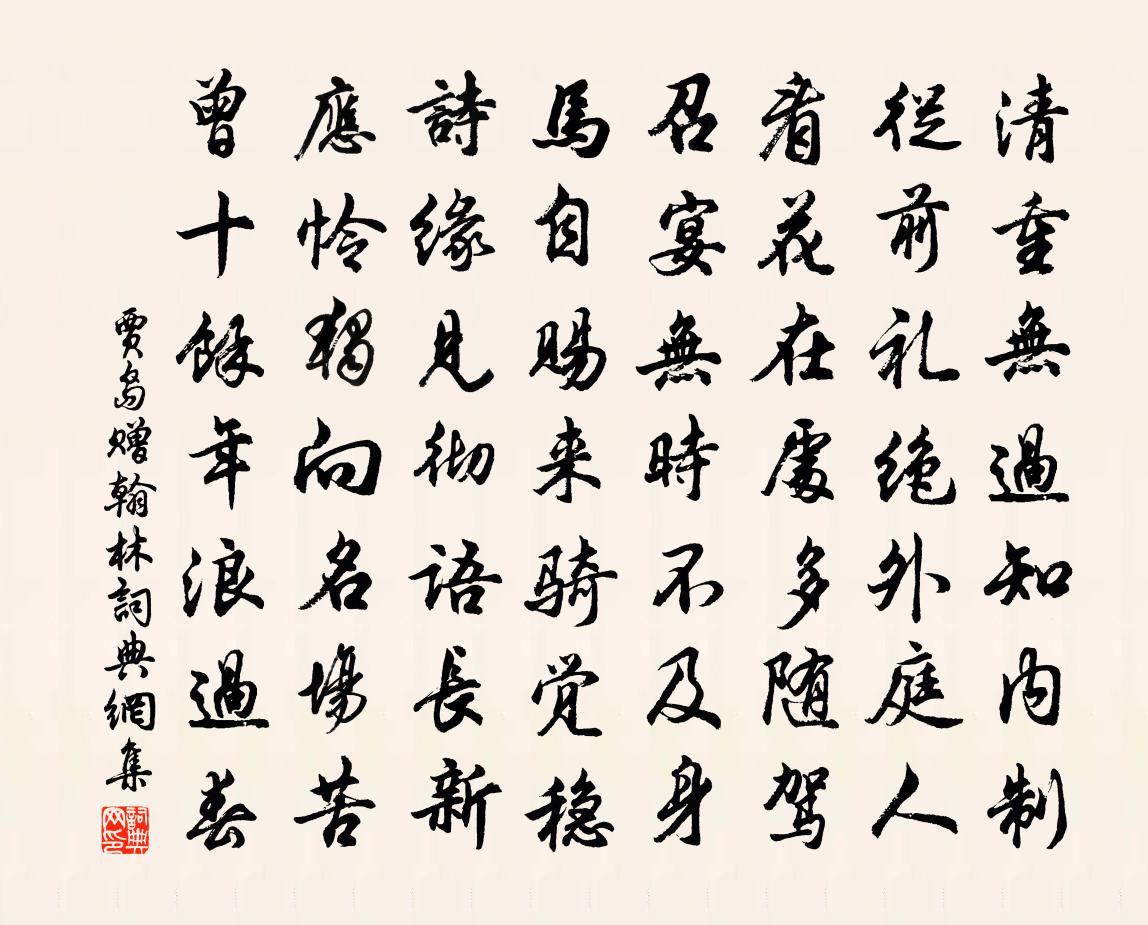 清重無過知内制
從前礼絶外庭人
看花在處多随駕
召宴無時不及身
馬自賜来骑覚穏
詩緣見彻語長新
應怜獨向名場苦
曾十餘年浪過春
賈島贈翰林詞典網集
詞典網印